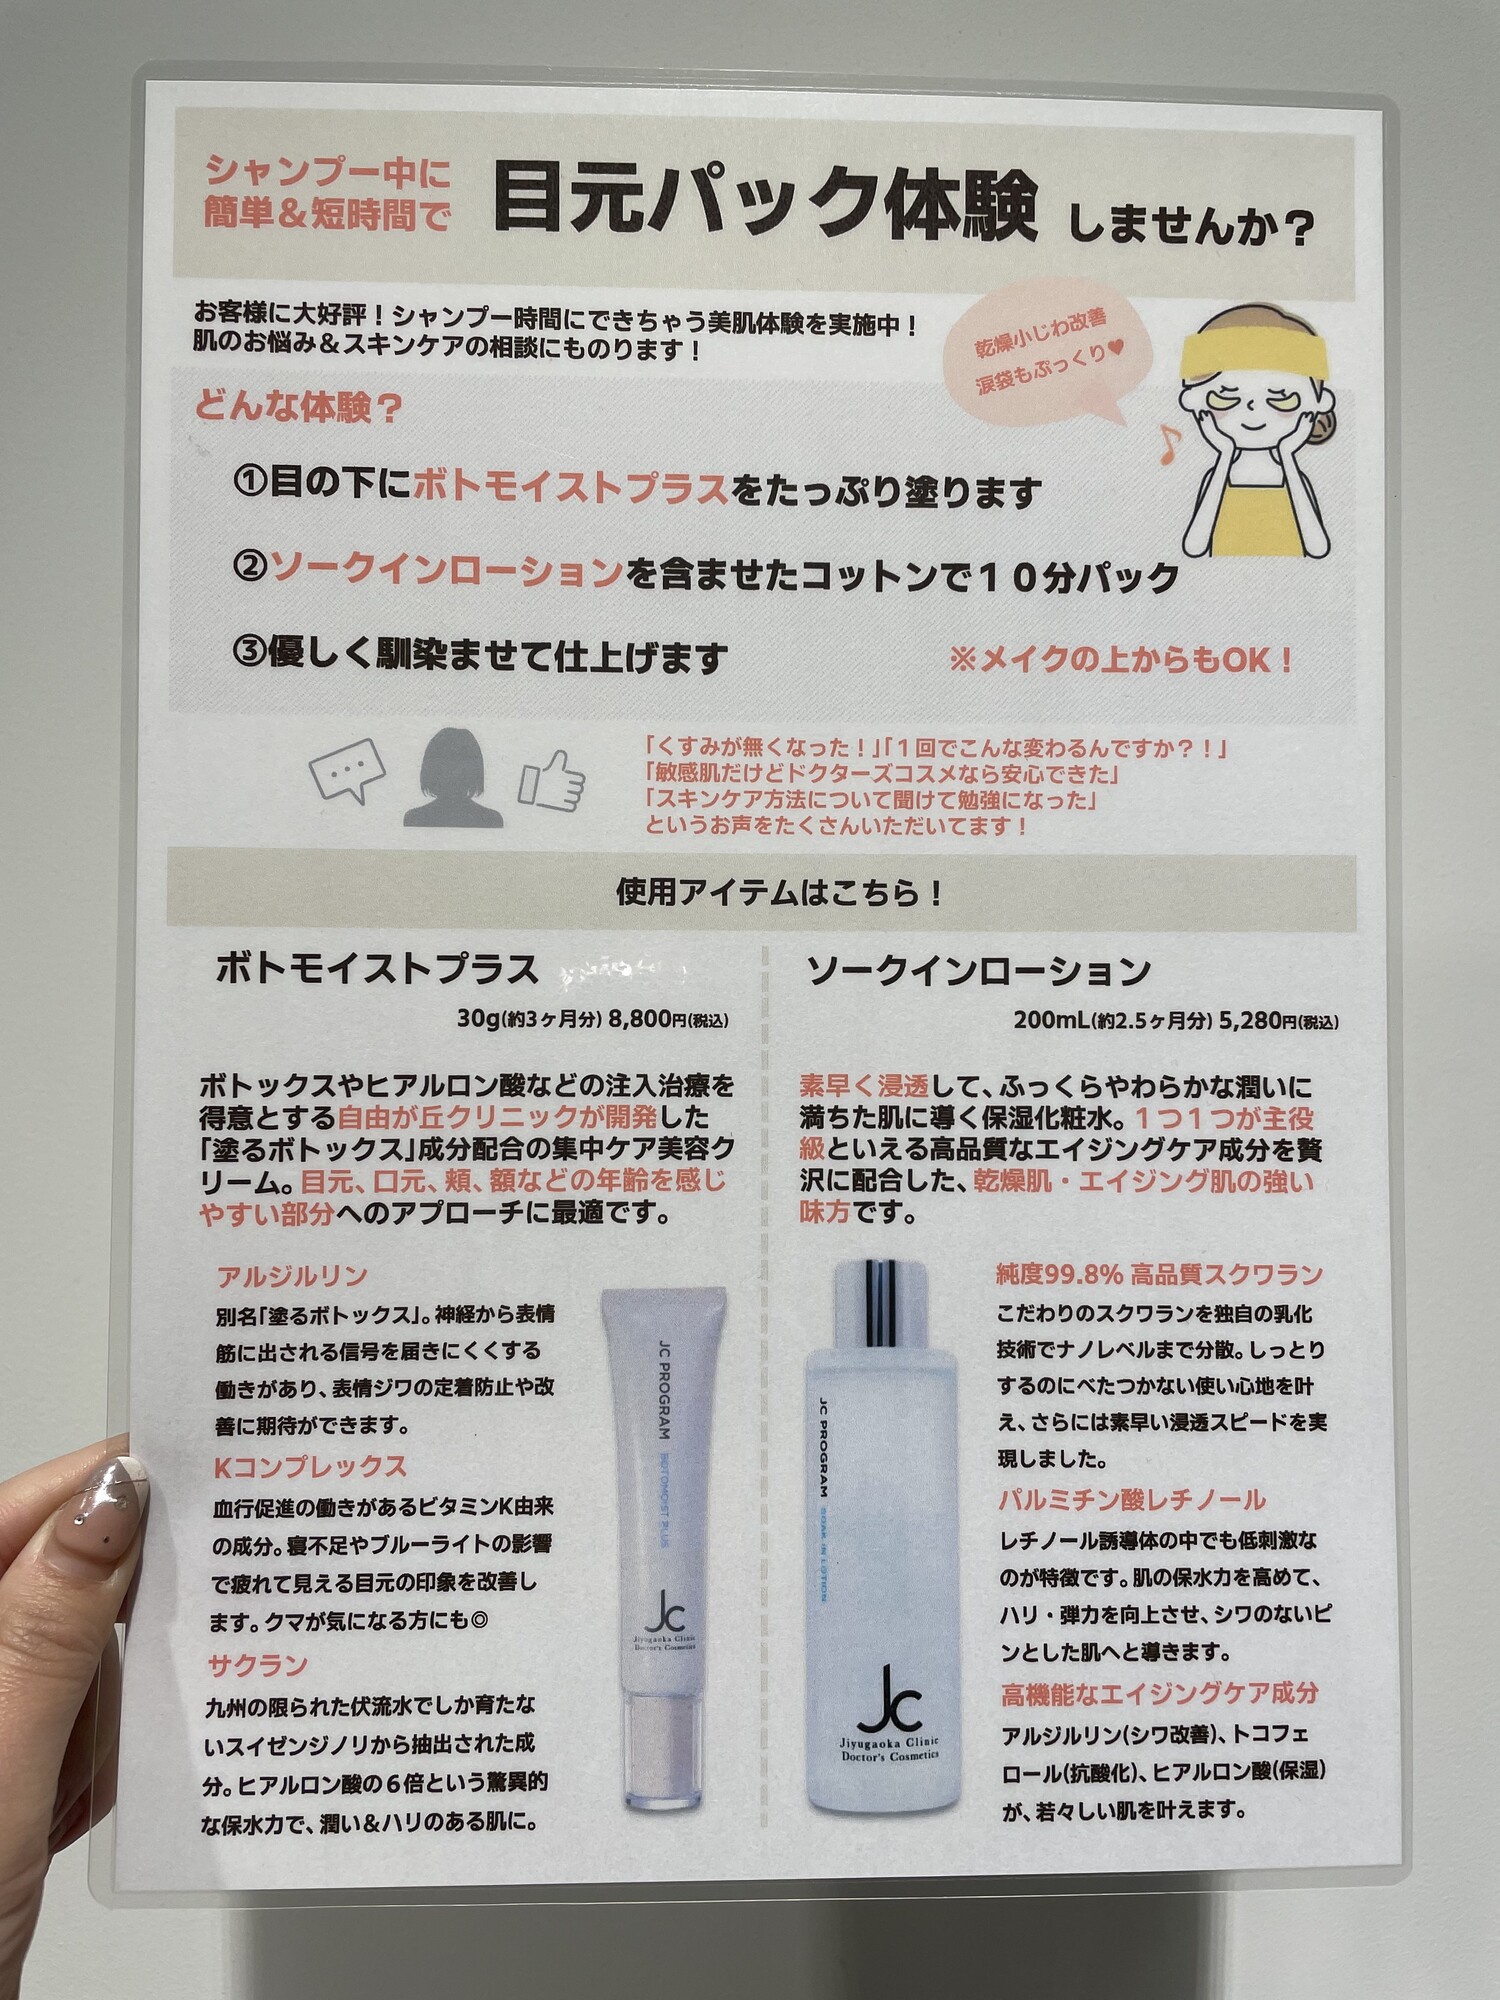 シャンプー中に
簡単＆短時間で
目元パック体験 しませんか？
お客様に大好評！シャンプー時間にできちゃう美肌体験を実施中！
肌のお悩み＆スキンケアの相談にものります！
乾燥小じわ改善
涙袋もぷっくり♥
どんな体験？
①目の下にボトモイストプラスをたっぷり塗ります
②ソークインローションを含ませたコットンで１０分パック
③優しく馴染ませて仕上げます
※メイクの上からもOK！
「くすみが無くなった！」「１回でこんな変わるんですか？！」
「敏感肌だけどドクターズコスメなら安心できた」
「スキンケア方法について聞けて勉強になった」
というお声をたくさんいただいてます！
使用アイテムはこちら！
ボトモイストプラス
30g(約3ヶ月分) 8,800円(税込)
ボトックスやヒアルロン酸などの注入治療を
得意とする自由が丘クリニックが開発した
「塗るボトックス」成分配合の集中ケア美容ク
リーム。目元、口元、頬、額などの年齢を感じ
やすい部分へのアプローチに最適です。
アルジルリン
別名「塗るボトックス」。神経から表情
筋に出される信号を届きにくくする
働きがあり、表情ジワの定着防止や改
善に期待ができます。
Kコンプレックス
血行促進の働きがあるビタミンK由来
の成分。寝不足やブルーライトの影響
で疲れて見える目元の印象を改善し
ます。クマが気になる方にも◎
サクラン
九州の限られた伏流水でしか育たな
いスイゼンジノリから抽出された成
分。ヒアルロン酸の６倍という驚異的
な保水力で、潤い＆ハリのある肌に。
JC PROGRAM BOTOMOIST PLUS
Jc
Jiyugaoka Clinic
Doctor's Cosmetics
ソークインローション
200mL(約2.5ヶ月分) 5,280円(税込)
素早く浸透して、ふっくらやわらかな潤いに
満ちた肌に導く保湿化粧水。１つ１つが主役
級といえる高品質なエイジングケア成分を贅
沢に配合した、乾燥肌・エイジング肌の強い
味方です。
JC PROGRAM SOAK IN LOTION
Jc
Jiyugaoka Clinic
Doctor's Cosmetics
純度99.8% 高品質スクワラン
こだわりのスクワランを独自の乳化
技術でナノレベルまで分散。しっとり
するのにべたつかない使い心地を叶
え、さらには素早い浸透スピードを実
現しました。
パルミチン酸レチノール
レチノール誘導体の中でも低刺激な
のが特徴です。肌の保水力を高めて、
ハリ・弾力を向上させ、シワのないピ
ンとした肌へと導きます。
高機能なエイジングケア成分
アルジルリン(シワ改善)、トコフェ
ロール(抗酸化)、ヒアルロン酸(保湿)
が、若々しい肌を叶えます。